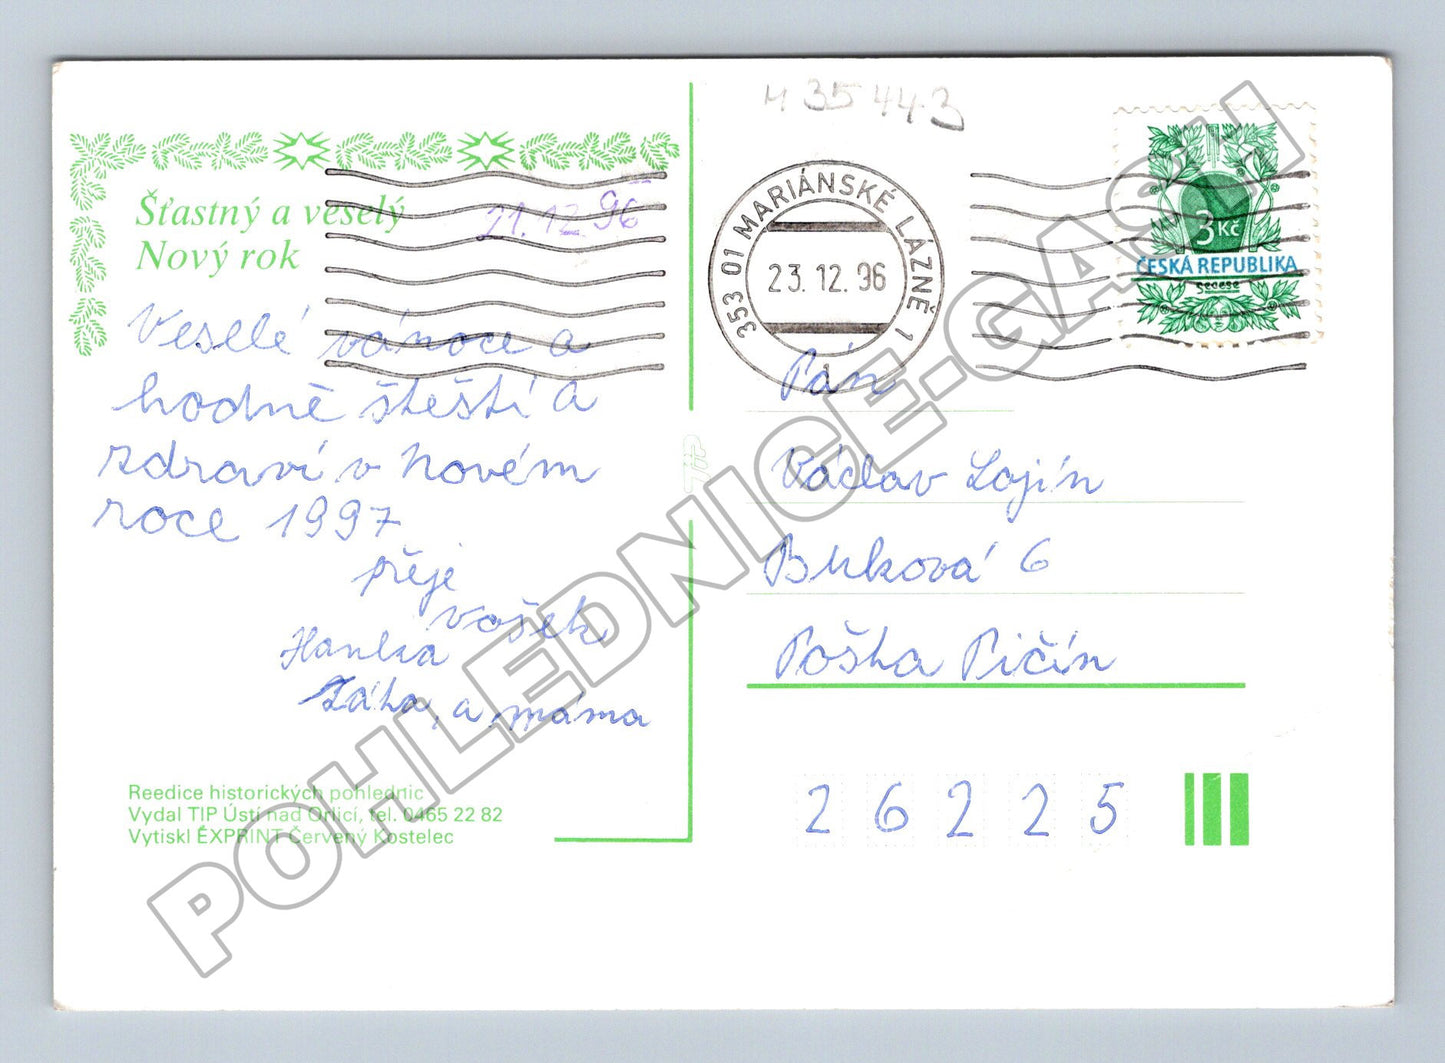 H 35 443
Šťastný a veselý
Nový rok
21.12.96
Veselé vánoce a
hodně štěstí a
zdraví v novém
roce 1997
přeje
Vašek
Hanka
Láha, a máma
Reedice historických pohlednic
Vydal TIP Ústí nad Orlicí, tel. 0465 22 82
Vytiskl EXPRINT Červený Kostelec
TIP
353 01 MARIÁNSKÉ LÁZNĚ 1
23.12.96
1
3 Kč
ČESKÁ REPUBLIKA
secese
Pán
Václav Lojín
Buková 6
Pošta Pičín
26225
POHLEDNICE-GASH